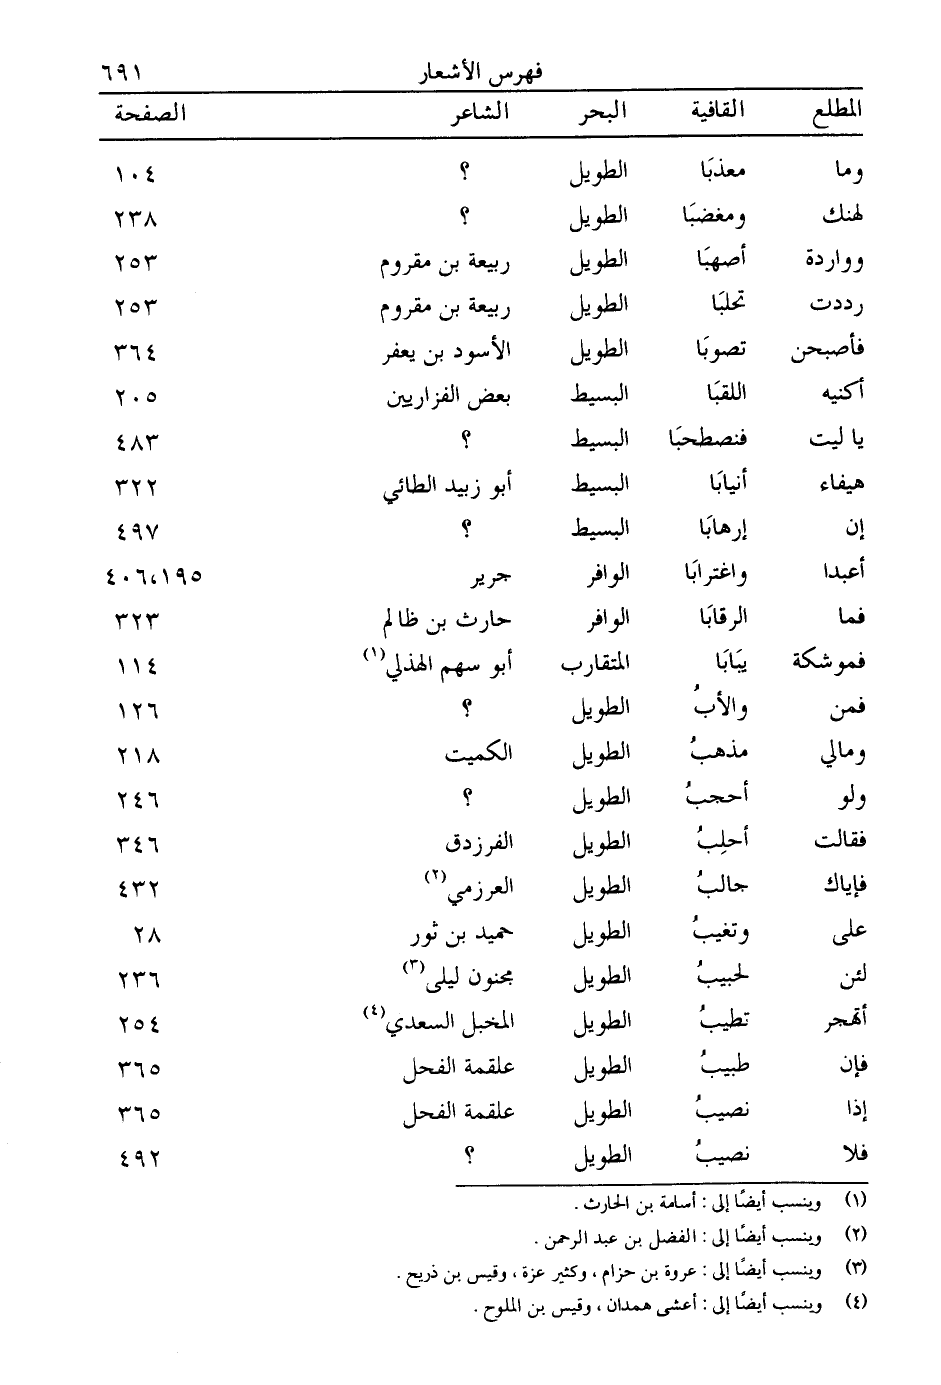 فهرس الأشعار ٦٩١
المطلع القافية البحر الشاعر الصفحة
وما معذبَا الطويل ؟ ١٠٤
لهنك ومغضبَا الطويل ؟ ٢٣٨
وواردة أصهبَا الطويل ربيعة بن مقروم ٢٥٣
رددت تحلبَا الطويل ربيعة بن مقروم ٢٥٣
فأصبحن تصوبَا الطويل الأسود بن يعفر ٣٦٤
أكنيه اللقبَا البسيط بعض الفزاريين ٢٠٥
يا ليت فنصطحبَا البسيط ؟ ٤٨٣
هيفاء أنيابَا البسيط أبو زبيد الطائي ٣٢٢
إن إرهابَا البسيط ؟ ٤٩٧
أعبدا واغترابَا الوافر جرير ٤٠٦،١٩٥
فما الرقابَا الوافر حارث بن ظالم ٣٢٣
فموشكة يبَابَا المتقارب أبو سهم الهذلي(١) ١١٤
فمن والأبُ الطويل ؟ ١٢٦
ومالي مذهبُ الطويل الكميت ٢١٨
ولو أحجبُ الطويل ؟ ٢٤٦
فقالت أحلِبُ الطويل الفرزدق ٣٤٦
فإياك جالبُ الطويل العرزمي(٢) ٤٣٢
على وتغيبُ الطويل حميد بن ثور ٢٨
لئن لحبيبُ الطويل مجنون ليلى(٣) ٢٣٦
أتهجر تطيبُ الطويل المخبل السعدي(٤) ٢٥٤
فإن طبيبُ الطويل علقمة الفحل ٣٦٥
إذا نصيبُ الطويل علقمة الفحل ٣٦٥
فلا نصيبُ الطويل ؟ ٤٩٢
(١) وينسب أيضًا إلى : أسامة بن الحارث .
(٢) وينسب أيضًا إلى : الفضل بن عبد الرحمن .
(٣) وينسب أيضًا إلى : عروة بن حزام ، وكثير عزة ، وقيس بن ذريح .
(٤) وينسب أيضًا إلى : أعشى همدان ، وقيس بن الملوح .